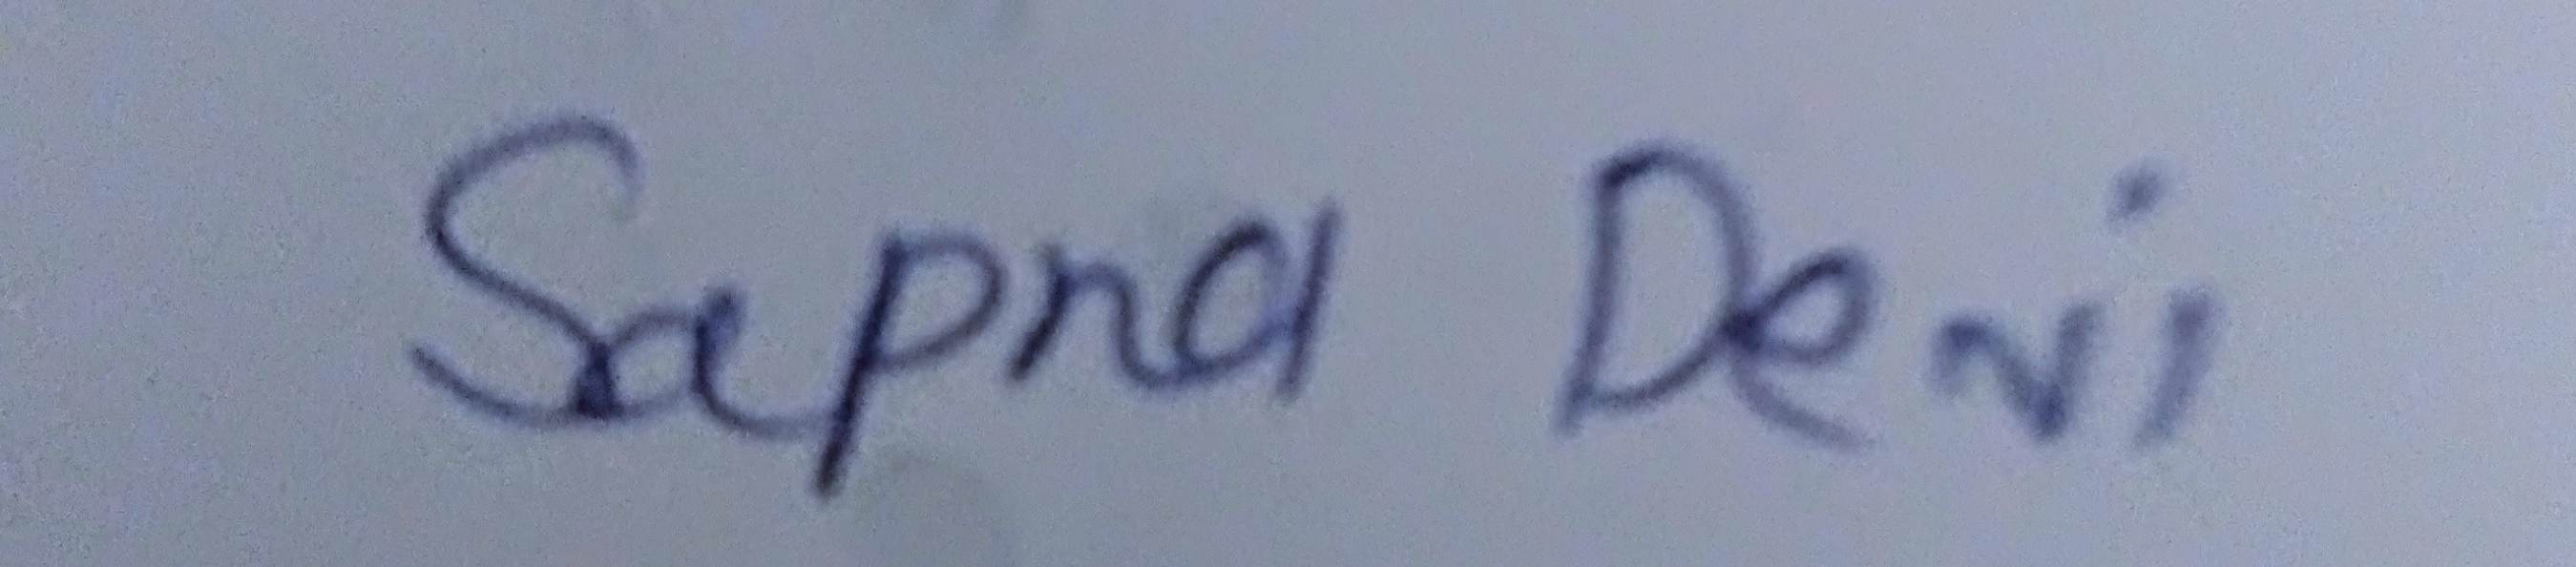 Sapna Devi